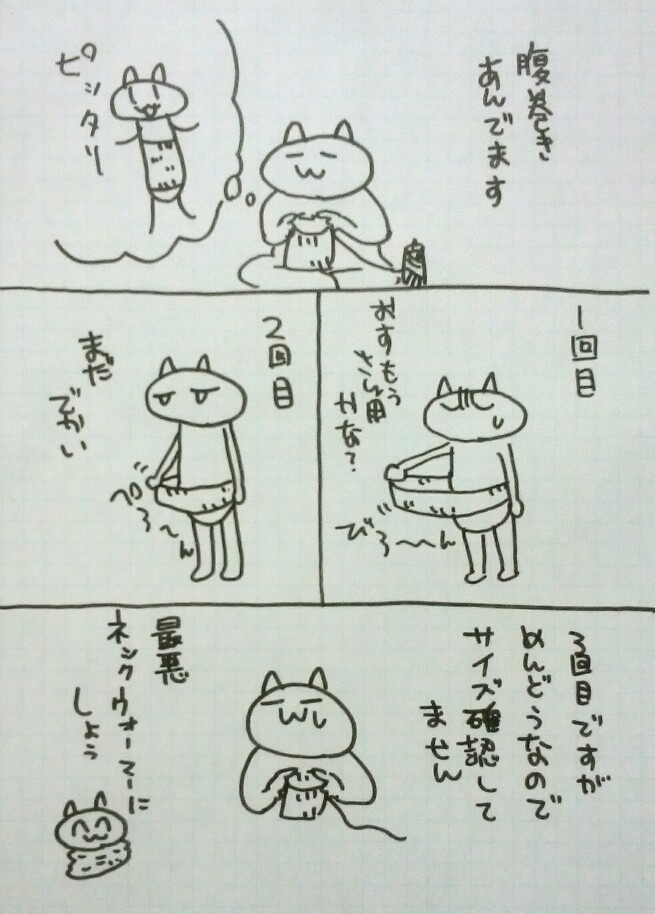 腹巻き
あんでます
ピッタリ
1回目
おすもう
さん用
かな?
びろ〜〜ん
2回目
まだ
でかい
ぺろ〜ん
3回目ですが
めんどうなので
サイズ確認して
ません
最悪
ネックウォーマーに
しよう